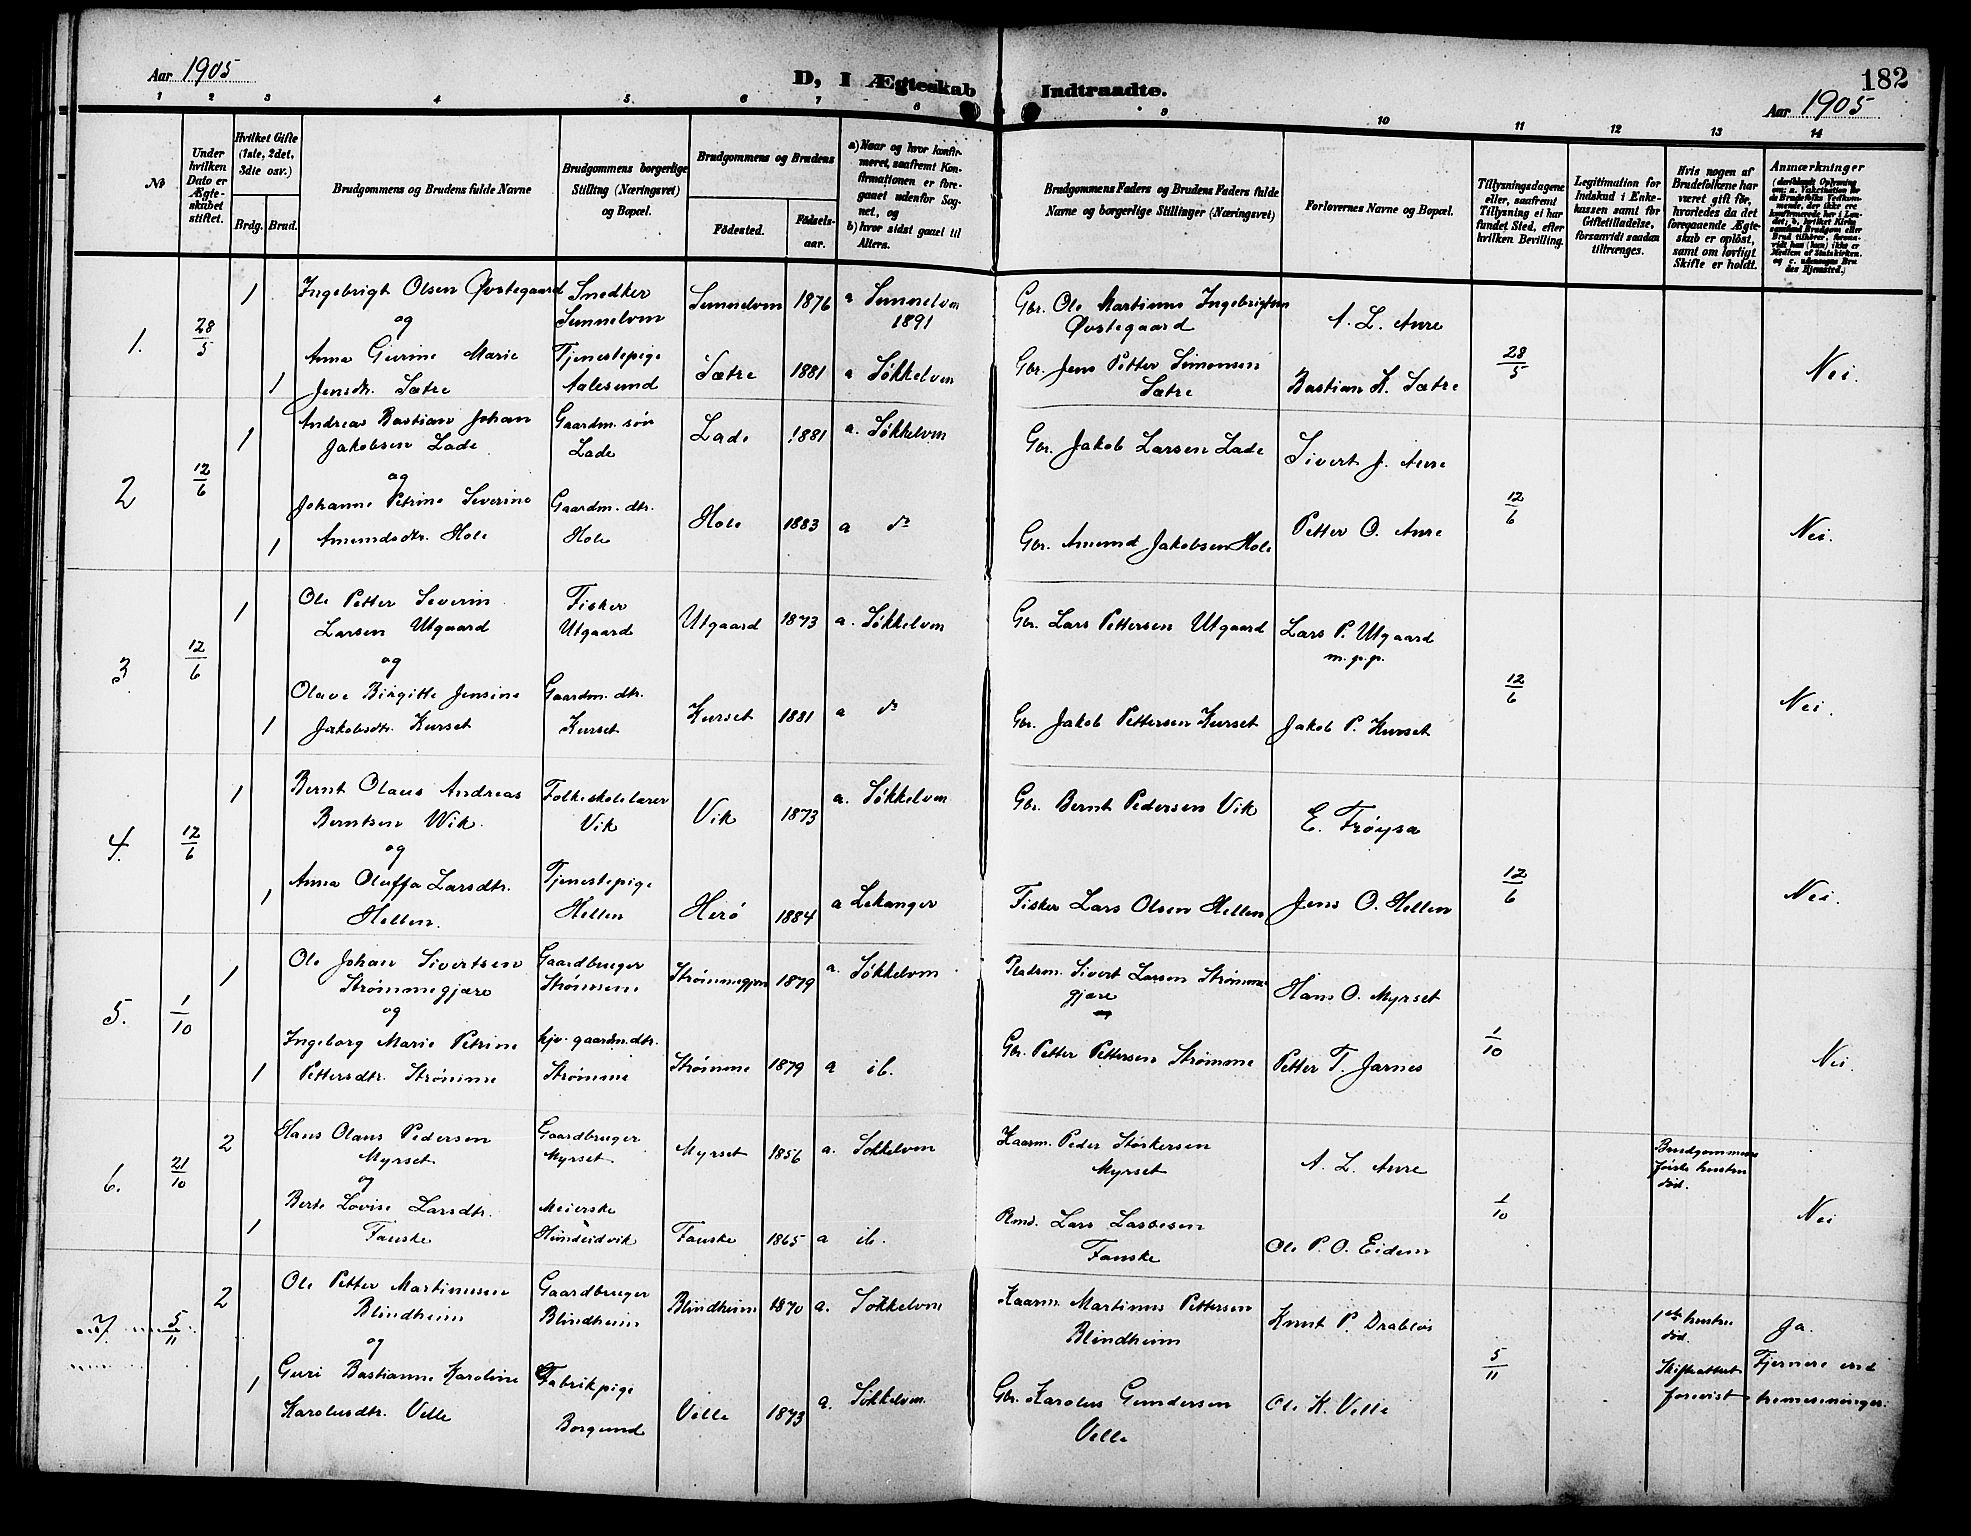 182
Aar 1905
D, I Ægteskab Indtraadte.
Aar 1905
1 2 3 4 5. 6 7 8 9 10 11 12 13 14
No
Under hvilken Dato er Ægteskabet stiftet.
Hvilket Gifte (1ste, 2det, 3die osv.)
Brdg. Brud.
Brudgommens og Brudens fulde Navne
Brudgommens borgerlige Stilling (Næringsvei) og Bopæl.
Brudgommens og Brudens
Fødested.
Fødselsaar.
a) Naar og hvor konfirmeret, saafremt Konfirmationen er foregaaet udenfor Sognet, og
b) hvor sidst gaaet til Alters.
Brudgommens Faders og Brudens Faders fulde Navne og borgerlige Stillinger (Næringsvei)
Forlovernes Navne og Bopæl.
Tillysningsdagene eller, saafremt Tillysning ei har fundet Sted, efter hvilken Bevilling.
Legitimation for Indskud i Enkekassen samt for Giftetilladelse, forsaavidt saadan tiltrænges.
Hvis nogen af Brudefolkene har været gift før, hvorledes da det foregaaende Ægteskab er opløst, samt om lovligt Skifte er holdt.
Anmærkninger
1. 28/5
1 Ingebrigt Olsen Øvstegaard Snedker Sunnelven Sunnelven 1876 a Sunnelven 1891 Gbr. Ole Martinus Ingebrigtsen Øvstegaard A. L. Aure
og
1 Anna Gurine Marie Jensdtr. Sætre Tjenestepige Aalesund Sætre 1881 a Søkkelven Gbr. Jens Petter Simonsen Sætre Bastian K. Sætre 28/5 Nei.
2 12/6
1 Andreas Bastian Johan Jakobsen Lade Gaardm. søn Lade Lade 1881 a. Søkkelven Gbr. Jakob Larsen Lade Sivert J. Aure
og
1 Johanne Petrine Severine Amundsdtr. Hole Gaardm. dtr. Hole Hole 1883 a do Gbr. Amund Jakobsen Hole Petter O. Aure 12/6 Nei.
3 12/6
1 Ole Petter Severin Larsen Utgaard Fisker Utgaard Utgaard 1873 a. Søkkelven Gbr. Lars Pettersen Utgaard Lars P. Utgaard m.p.p.
og
1 Olave Birgitte Jensine Jakobsdtr. Kurset Gaardm. dtr. Kurset Kurset 1881 a do Gbr. Jakob Pettersen Kurset Jakob P. Kurset 12/6 Nei.
4. 12/6
1 Bernt Olaus Andreas Berntsen Wik. Folkeskolelærer Vik Vik 1873 a. Søkkelven Gbr. Bernt Pedersen Vik E. Trøysa
og
1 Anna Oluffa Larsdtr. Hellen. Tjenestepige Hellen Herø 1884 a Lekanger Fisker Lars Olsen Hellen Jens O. Hellen 12/6 Nei.
5. 1/10
1 Ole Johan Sivertsen Strømmegjære Gaardbruger Strømme Strømmegjære 1879 a. Søkkelven Sivert Larsen Strømmegjære Hans O. Myrset
og
1 Ingeborg Marie Petrine Pettersdtr. Strømme gaardm. dtr. Strømme Strømme 1879 a ib. Gbr. Petter Pettersen Strømme Petter T. Jarnes 1/10 Nei.
6. 21/10
2 Hans Olaus Pedersen Myrset Gaardbruger Myrset Myrset 1856 a. Søkkelven Kaarm. Peder Størkersen Myrset A. L. Aure Brudgommens første hustru død.
og
1 Berte Lovise Larsdtr. Fauske Meierske Hundeidvik Fauske 1865 a ib. Lars Lassesen Fauske Ole P. O. Eidem 1/10 Nei
7. 5/11
2 Ole Petter Martinusen Blindheim Gaardbruger Blindheim Blindheim 1870 a. Søkkelven Kaarm. Martinus Pettersen Blindheim Knut P. Drabløs 1ste hustru død. Ja.
og
1 Guri Bastianne Karoline Karolusdtr. Velle Fabrikpige Borgund Velle 1873 a. Søkkelven. Gbr. Karolus Gundersen Velle Ole K. Velle 5/11 Skifteattest forevist Fjernere end tremenninger.